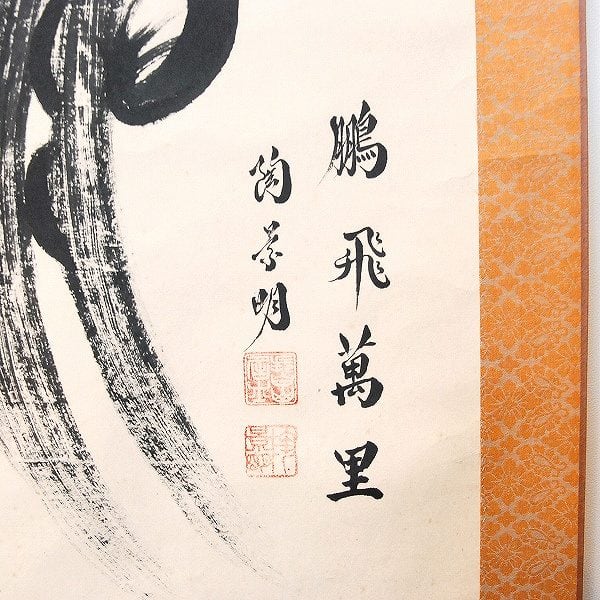 鵬飛萬里
陶景明